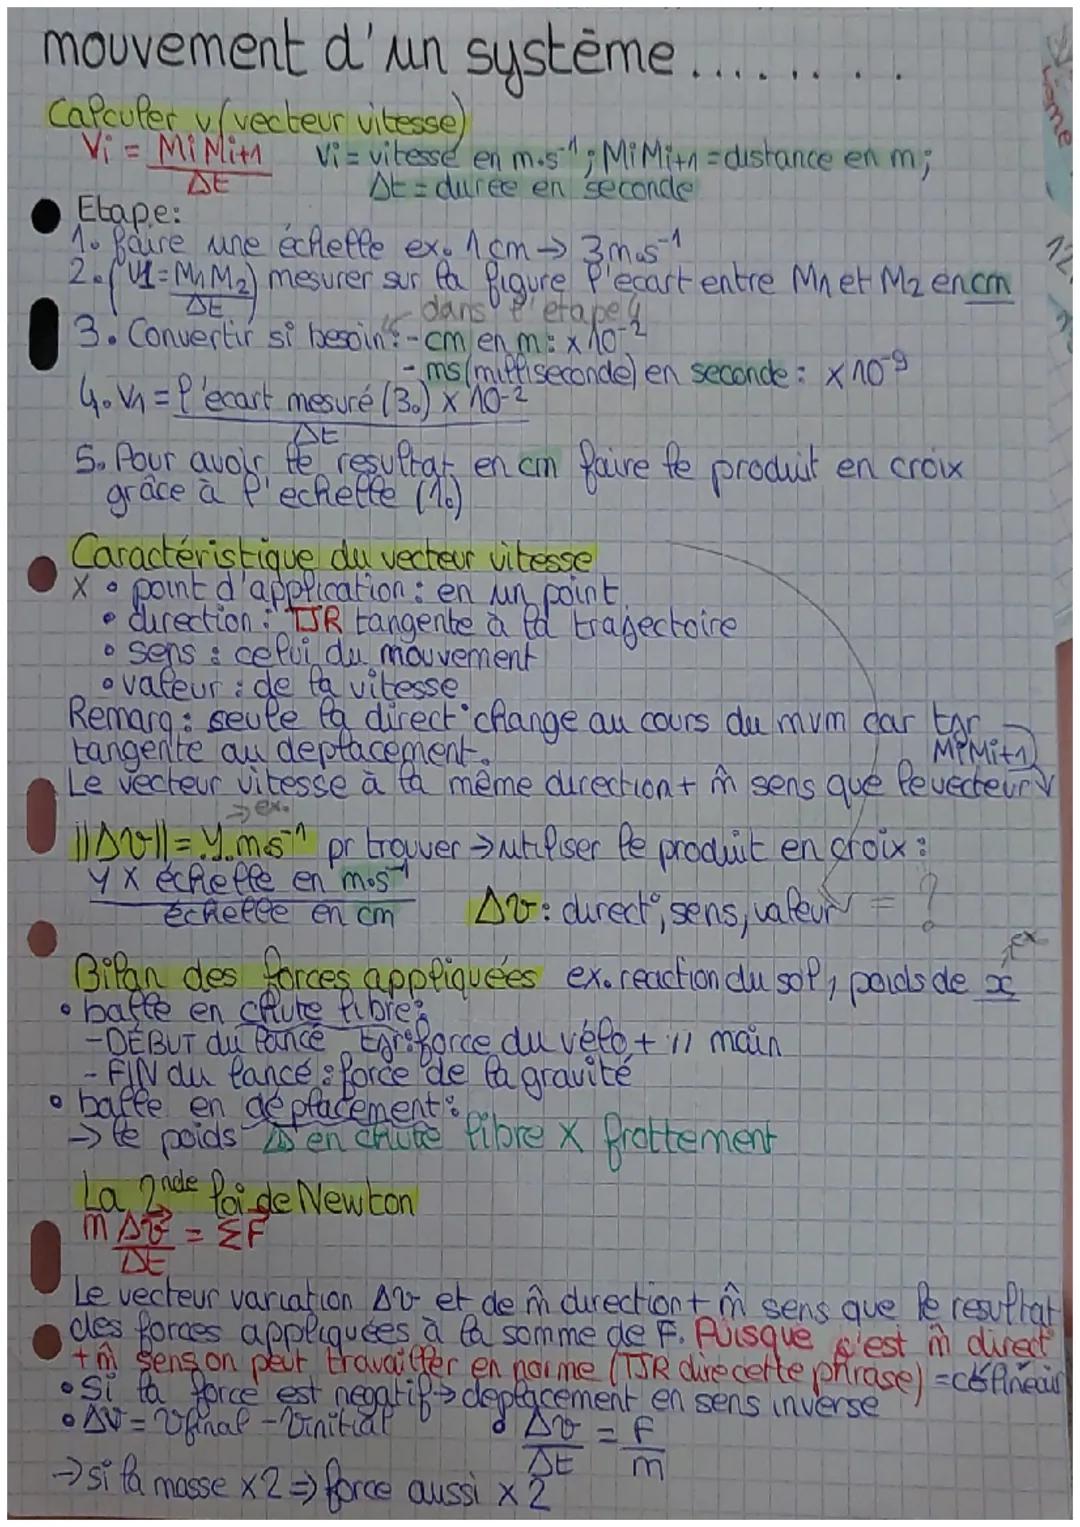 mouvement d'un système........
Calculer v (vecteur vitesse)
Vi = MiMi+1 / Δt Vi = vitesse en m.s⁻¹ ; MiMi+1 = distance en m ;
Δt = durée en seconde
Etape :
1. faire une échelle ex. 1 cm → 3 m.s⁻¹
2. (V1 = M1M2 / Δt) mesurer sur la figure l'ecart entre M1 et M2 en cm
dans l'etape 4
3. Convertir si besoin : - cm en m : x 10⁻²
- ms (milliseconde) en seconde : x 10⁻⁹
4. V1 = l'ecart mesuré (3.) x 10⁻² / Δt
5. Pour avoir le resultat en cm faire le produit en croix
grâce à l'echelle (1.)
Caractéristique du vecteur vitesse
X • point d'application : en un point
• direction : TJR tangente à la trajectoire
• sens : celui du mouvement
• valeur : de la vitesse
Remarq : seule la direct° change au cours du mvm car tjr
tangente au deplacement.
MiMi+1
Le vecteur vitesse à la même direction + m̂ sens que le vecteur
→ ex.
||Δv|| = y m.s⁻¹ pr trouver → utiliser le produit en croix :
y x échelle en m.s⁻¹ / échelle en cm
Δv : direct°, sens, valeur = ?
ex
Bilan des forces appliquées ex. reaction du sol, poids de x
• balle en chute libre :
- DÉBUT du lancé tjr : force du vélo + // main
- FIN du lancé : force de la gravité
• balle en déplacement :
→ le poids ⚠ en chute libre X frottement
La 2nde loi de Newton
m Δv / Δt = ΣF
Le vecteur variation Δv et de m̂ direction + m̂ sens que le resultat
des forces appliquées à la somme de F. Puisque c'est m̂ direct°
+ m̂ sens on peut travailler en norme (TJR dire cette phrase) =
• Si la force est negatif → deplacement en sens inverse
• ΔV = Vfinal - Vinitial • Δv / Δt = F / m
→ si la masse x2 ⇒ force aussi x 2